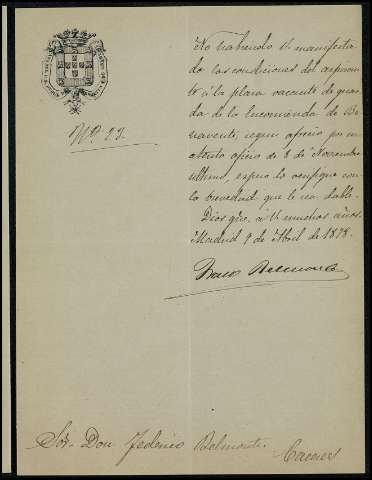 No habiendo V. manifesta-
do las condiciones del aspiran-
te á la plaza vacante de guar-
da de la Encomienda de Be-
navente, segun ofrecio por su
atento oficio de 8 de Noviembre
ultimo, espero lo verifique con
la brevedad que le sea dable.
Dios gue. á V. muchos años.
Madrid 9 de Abril de 1878.
Nº. 23.
Belmonte
Sor. Don Federico Belmonte.
Caceres